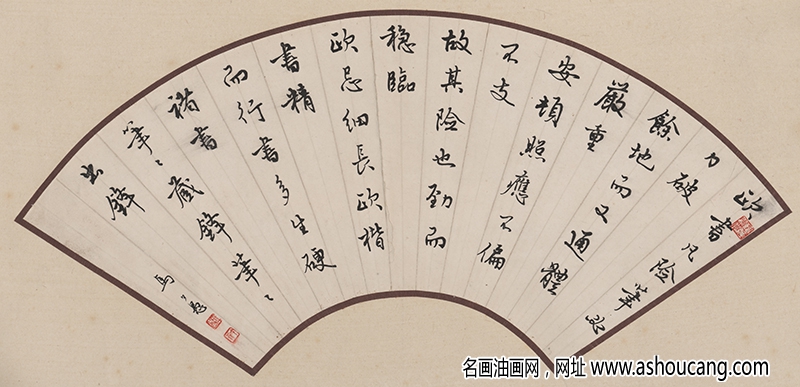 欧書凡險筆必
力破
餘地而又通體
嚴重
安頓照應不偏
不支
故其險也勁而
穩臨
欧忌細長欧楷
書精
而行書多生硬
褚書
筆〻藏鋒筆〻
出鋒
名画油画网，网址 www.ashoucang.com